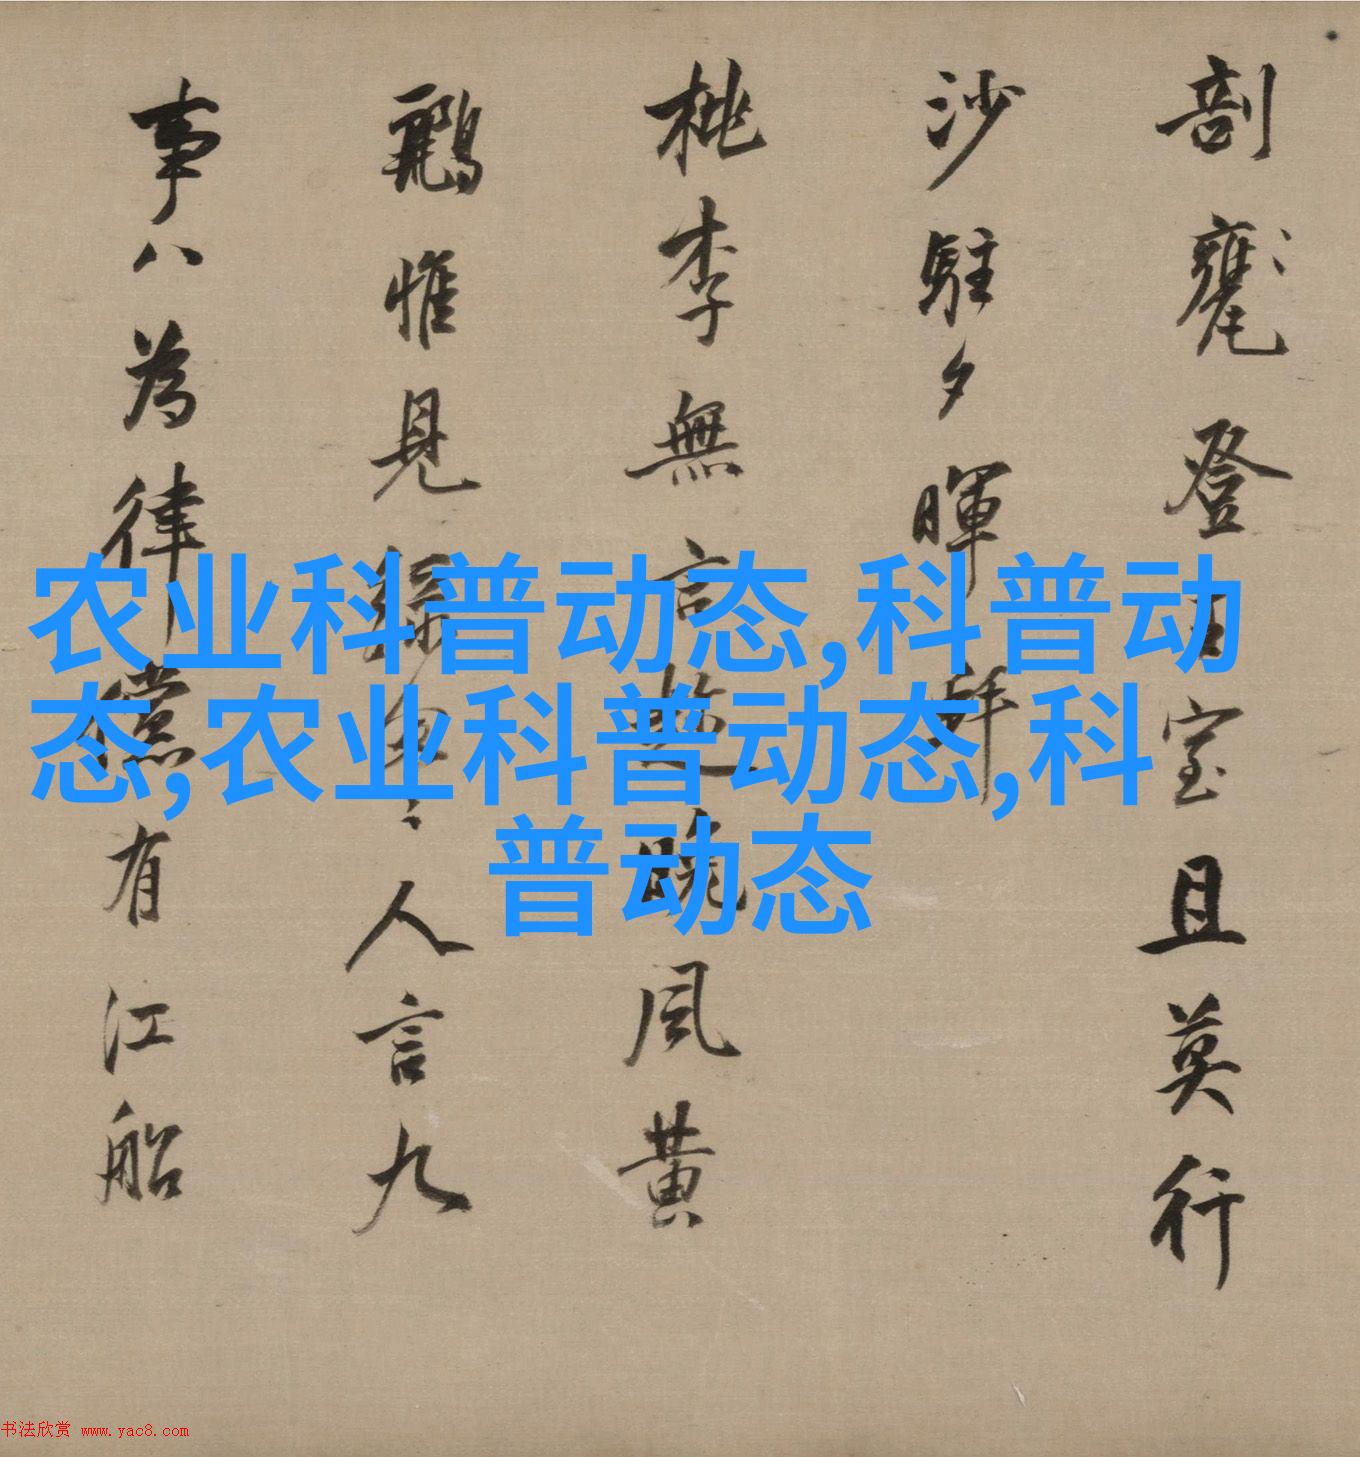 剖甕登
室且莫行
沙駐夕暉
桃李無言
晚風黃
鸝惟見
人言九
事八為律儻有江船
农业科普动态,科普动
态,农业科普动态,科
普动态
书法欣赏 www.yac8.com